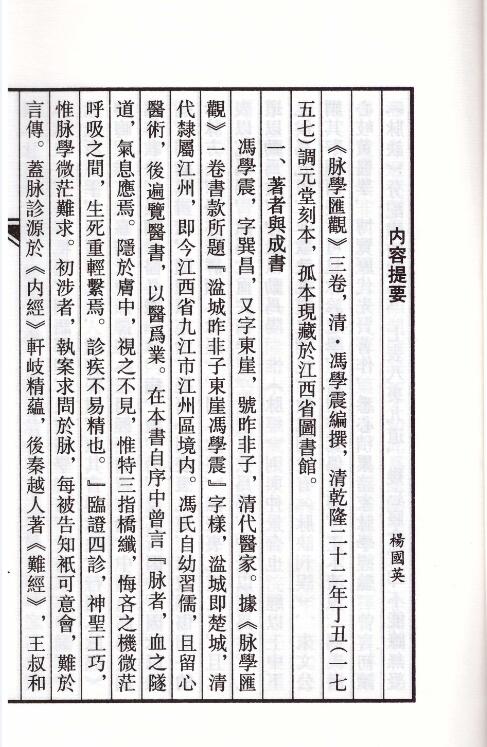 内容提要
楊國英
《脉學匯觀》三卷，清·馮學震編撰，清乾隆二十二年丁丑（一七
五七）調元堂刻本，孤本現藏於江西省圖書館。
一、著者與成書
馮學震，字巽昌，又字東崖，號昨非子，清代醫家。據《脉學匯
觀》一卷書款所題『湓城昨非子東崖馮學震』字樣，湓城即楚城，清
代隸屬江州，即今江西省九江市江州區境内。馮氏自幼習儒，且留心
醫術，後遍覽醫書，以醫爲業。在本書自序中曾言『脉者，血之隧
道，氣息應焉。隱於膚中，視之不見，惟特三指橋纖，悔吝之機微茫
呼吸之間，生死重輕繫焉。診疾不易精也。』臨證四診，神聖工巧，
惟脉學微茫難求。初涉者，執案求問於脉，每被告知衹可意會，難於
言傳。蓋脉診源於《内經》軒岐精蘊，後秦越人著《難經》，王叔和